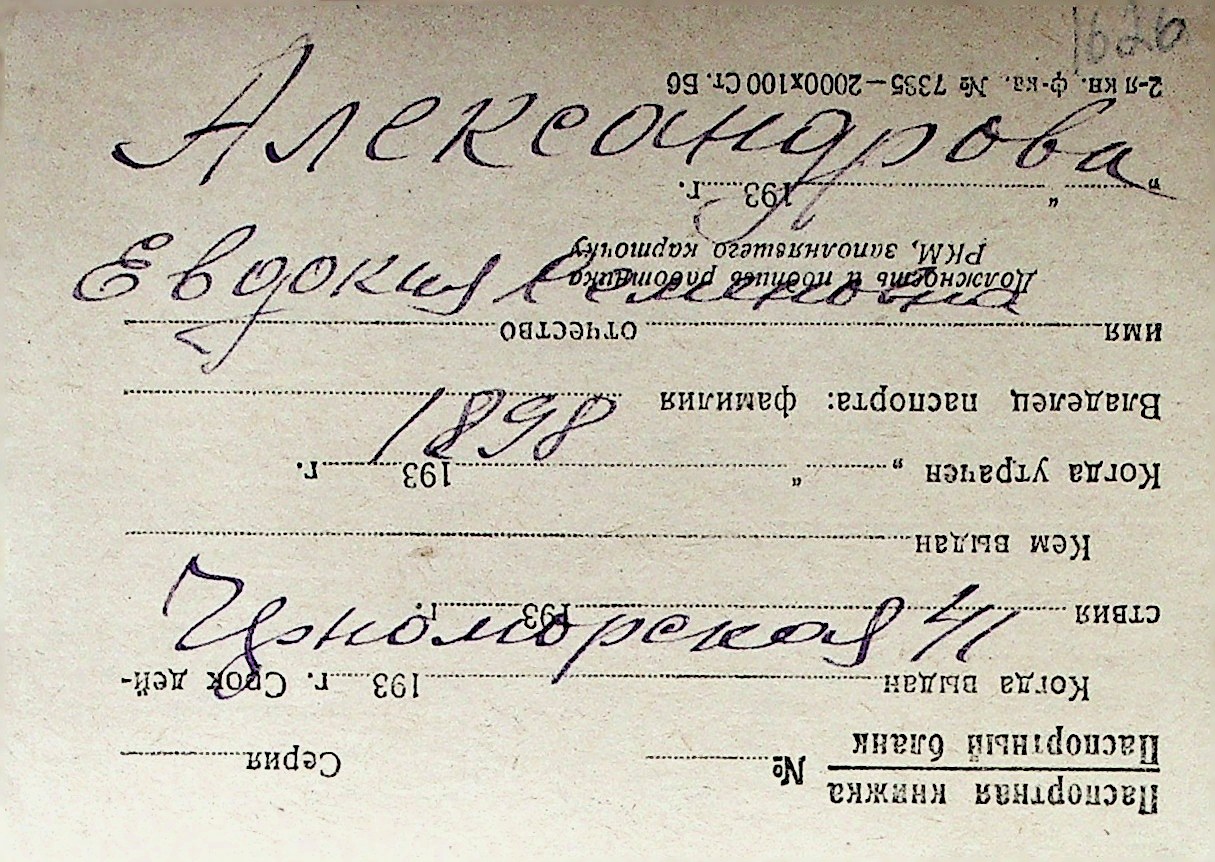 1626
Александрова
Евдокия Семеновна
1898
Черноморская 41
Паспортная книжка
Паспортный бланк
№ Серия
Когда выдан 193 г. Срок дей-
ствия 193 г.
Кем выдан
Когда утрачен „ “ 193 г.
Владелец паспорта: фамилия
имя отчество
Должность и подпись работника
РКМ, заполнявшего карточку
„ “ 193 г.
2-я кн. ф-ка. № 7395—2000х100 Ст. Б6